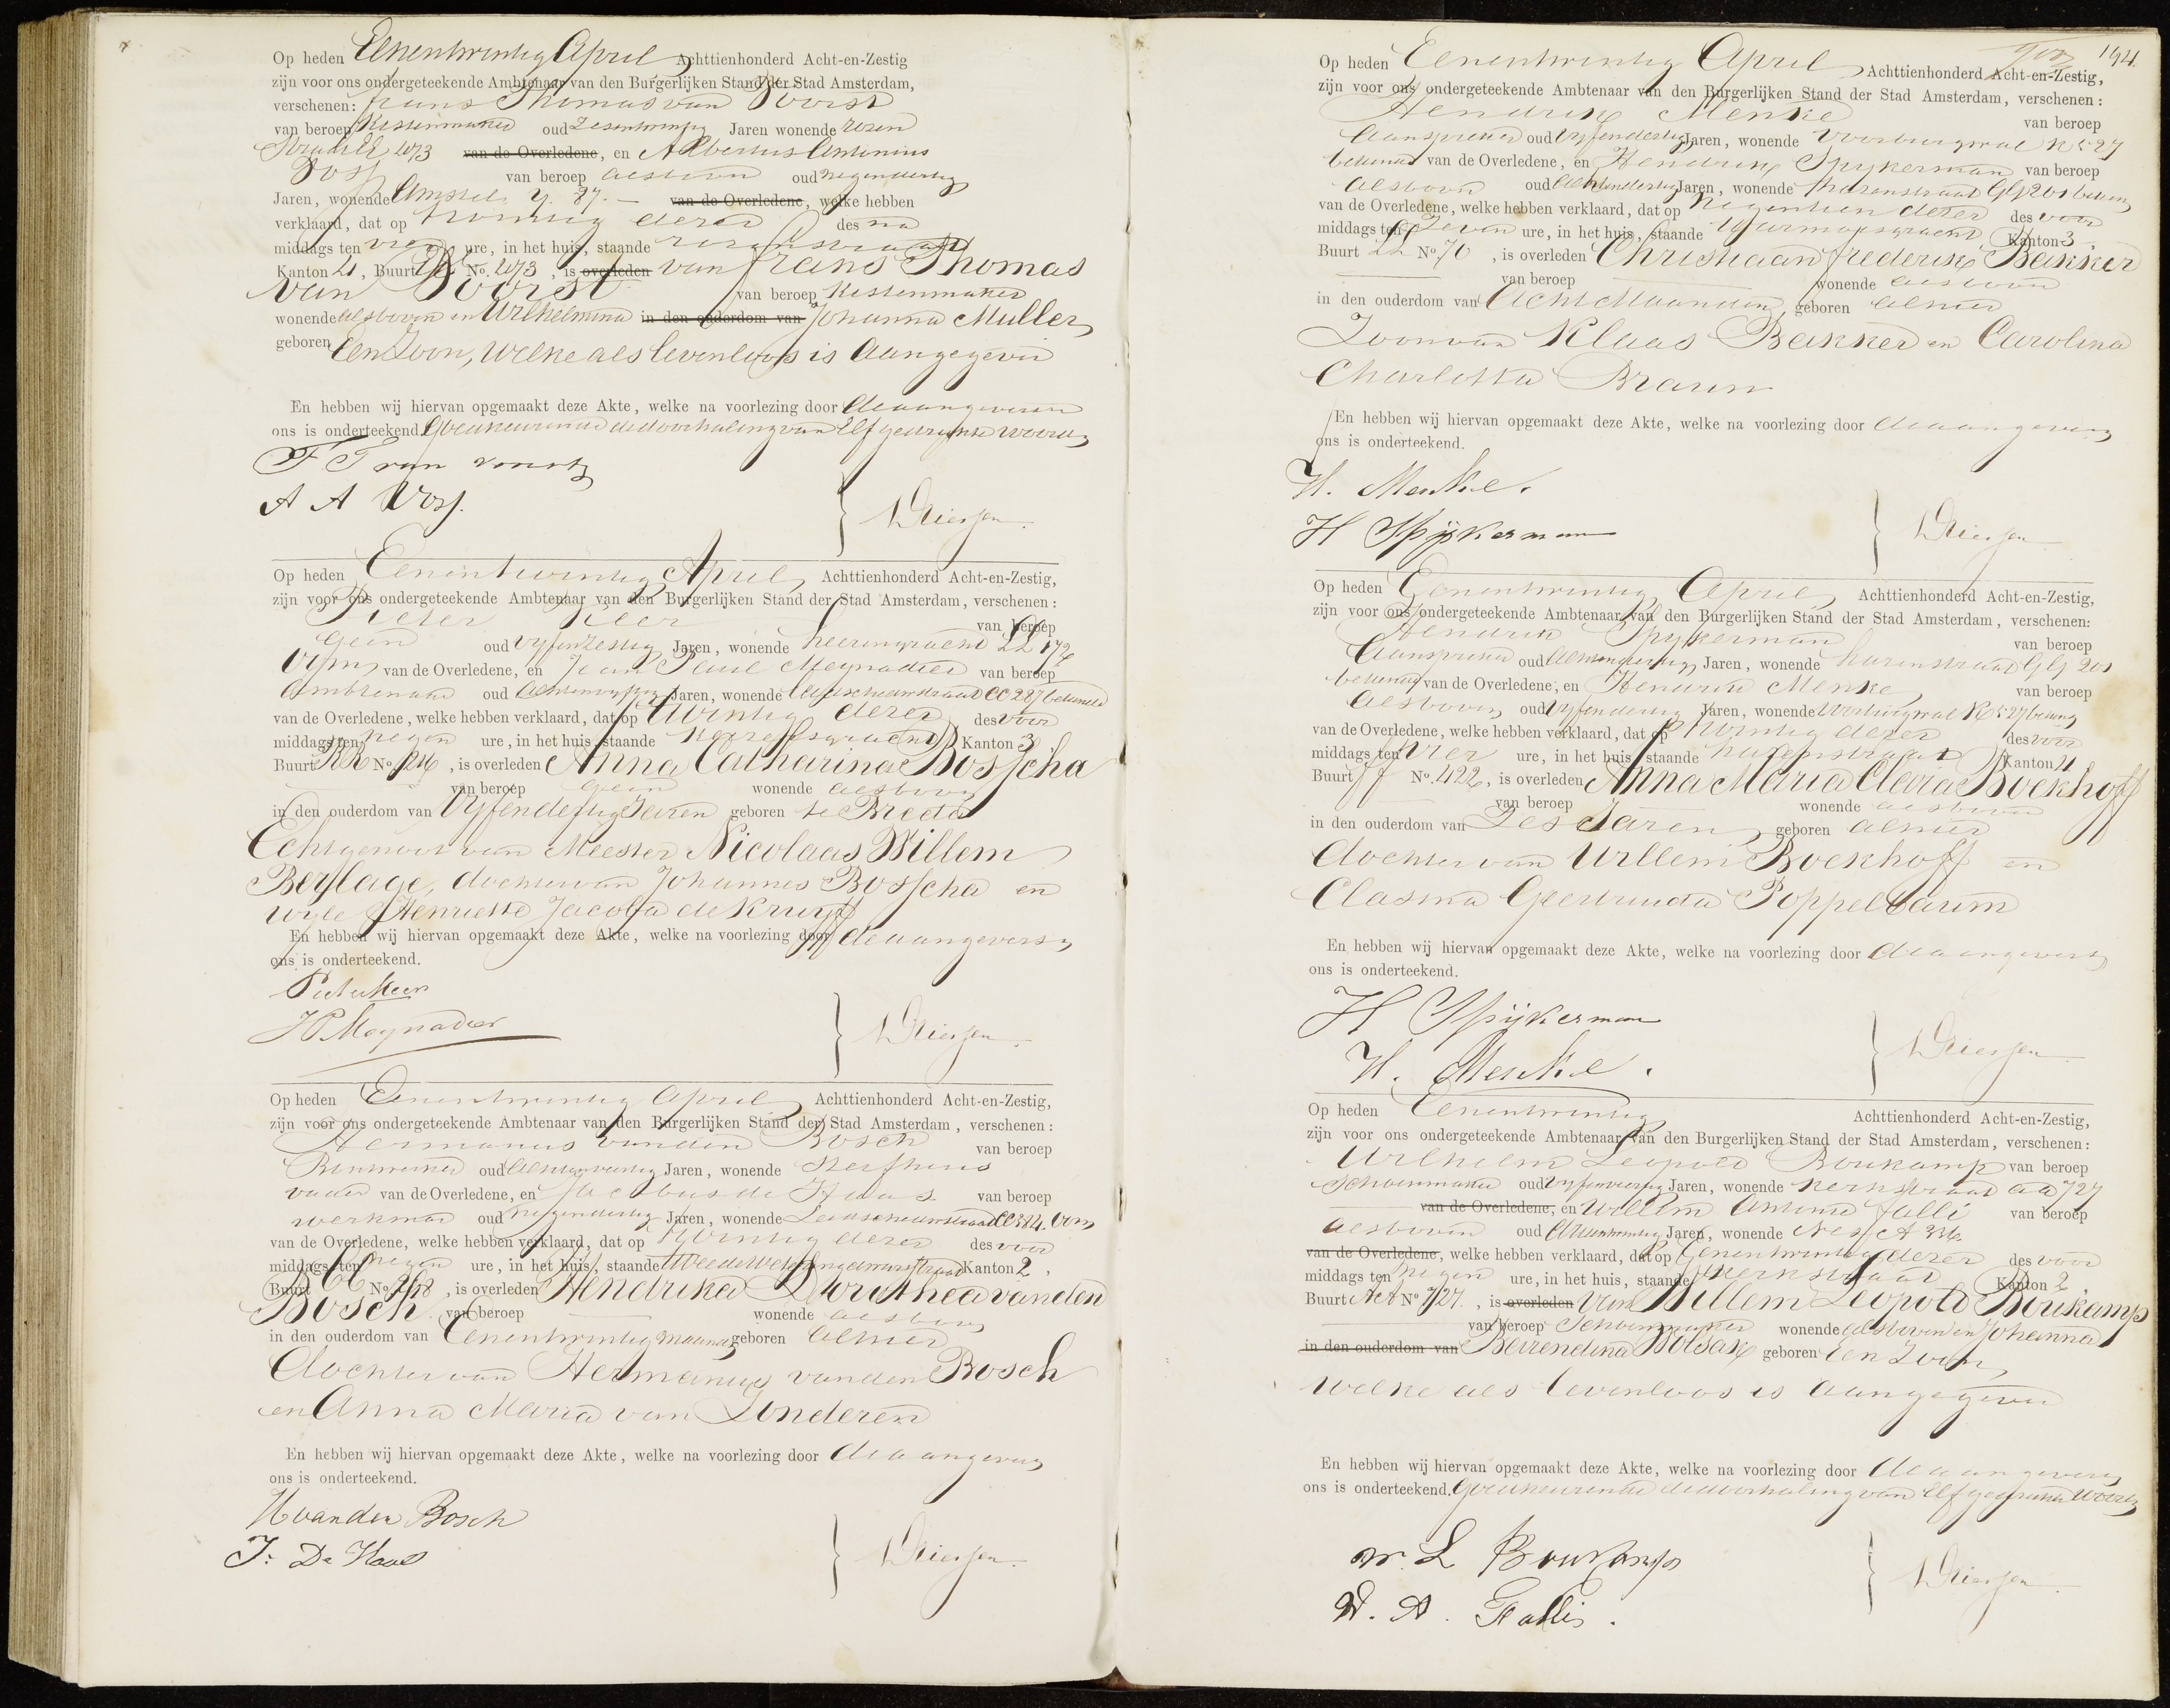 Op heden Eenentwintig April Achttienhonderd Acht-en-Zestig
zijn voor ons ondergeteekende Ambtenaar van den Burgerlijken Stand der Stad Amsterdam,
verschenen: frans Thomas van Voorst
van beroep Kistenmaker oud Zesentwintig Jaren wonende rozen
straat 473 van de Overledene, en Albertus Antonius
Vos van beroep alsboven oud negendertig
Jaren, wonende Amstel 87. – van de Overledene, welke hebben
verklaard, dat op twintig dezer des na
middags ten vier ure, in het huis, staande rozenstraat
Kanton 4, Buurt No. 473, is overleden van frans Thomas
van Voorst van beroep Kistenmaker
wonende alsboven en Wilhelmina in den ouderdom van Johanna Muller
geboren Een Zoon, welke als levenloos is aangegeven
En hebben wij hiervan opgemaakt deze Akte, welke na voorlezing door de aangevers en
ons is onderteekend. Goedkeurende de doorhaling van Elf gedrukte woorden
F T van voorst
A A Vos.
Op heden Eenentwintig April Achttienhonderd Acht-en-Zestig,
zijn voor ons ondergeteekende Ambtenaar van den Burgerlijken Stand der Stad Amsterdam, verschenen:
Pieter Keer van beroep
Geen oud Vyfenzestig Jaren, wonende heerengracht LL 172
van de Overledene, en Jean Paul Meynadier van beroep
Ambtenaar oud Achtenvyftig Jaren, wonende Leidschedwarsstraat CC 287 bekende
van de Overledene, welke hebben verklaard, dat op twintig dezer des voor
middags ten negen ure, in het huis, staande Kanton 3
Buurt KK No., is overleden Anna Catharina Bosscha
van beroep Geen wonende alsboven
in den ouderdom van Vyfendertig Jaren geboren te Breda
Echtgenoot van Meester Nicolaas Willem
Berlage, dochter van Johannes Bosscha en
wyle Henriette Jacoba de Kruyff
En hebben wij hiervan opgemaakt deze Akte, welke na voorlezing door de aangevers en
ons is onderteekend.
Pieter Keer
J P Meynadier
Op heden Eenentwintig April Achttienhonderd Acht-en-Zestig,
zijn voor ons ondergeteekende Ambtenaar van den Burgerlijken Stand der Stad Amsterdam, verschenen:
Hermanus van den Bosch van beroep
oud Jaren, wonende
vader van de Overledene, en Jacobus de Haas van beroep
werkman oud negendertig Jaren, wonende Leidschedwarsstraat
van de Overledene, welke hebben verklaard, dat op twintig dezer des voor
middags ten negen ure, in het huis, staande Kanton 2,
Buurt CC No., is overleden Hendrika Dorothea van den
Bosch van beroep wonende alsboven
in den ouderdom van Eenentwintig maanden geboren alhier
dochter van Hermanus van den Bosch
en Anna Maria van Londeren
En hebben wij hiervan opgemaakt deze Akte, welke na voorlezing door de aangevers en
ons is onderteekend.
H van den Bosch
J: De Haas
194.
Op heden Eenentwintig April Achttienhonderd Acht-en-Zestig,
zijn voor ons ondergeteekende Ambtenaar van den Burgerlijken Stand der Stad Amsterdam, verschenen:
Hendrik Menke van beroep
Aanspreker oud Vyfendertig Jaren, wonende Voorburgwal K 527
bekende van de Overledene, en Hendrik Spykerman van beroep
alsboven oud Achtendertig Jaren, wonende hazenstraat GG 201 bekende
van de Overledene, welke hebben verklaard, dat op negentien dezer des voor
middags ten Zeven ure, in het huis, staande Kanton 3,
Buurt LL No. 70, is overleden Christiaan frederik Bakker
van beroep wonende alsboven
in den ouderdom van Acht Maanden, geboren alhier
Zoon van Klaas Bakker en Carolina
Charlotta Braun
En hebben wij hiervan opgemaakt deze Akte, welke na voorlezing door de aangevers en
ons is onderteekend.
H. Menke.
H Spijkerman
Op heden Eenentwintig April Achttienhonderd Acht-en-Zestig,
zijn voor ons ondergeteekende Ambtenaar van den Burgerlijken Stand der Stad Amsterdam, verschenen:
Hendrik Spykerman van beroep
Aanspreker oud Achtendertig Jaren, wonende hazenstraat GG 201
bekende van de Overledene, en Hendrik Menke van beroep
alsboven oud Vyfendertig Jaren, wonende Voorburgwal K 527 bekende
van de Overledene, welke hebben verklaard, dat op twintig dezer des voor
middags ten vier ure, in het huis, staande hazenstraat Kanton 4
Buurt No. 422, is overleden Anna Maria Clara Boekhoff
van beroep wonende alsboven
in den ouderdom van Zes Jaren, geboren alhier
dochter van Willem Boekhoff en
Clasina Geertruida Poppelbaum
En hebben wij hiervan opgemaakt deze Akte, welke na voorlezing door de aangevers en
ons is onderteekend.
H Spijkerman
H. Menke.
Op heden Eenentwintig Achttienhonderd Acht-en-Zestig,
zijn voor ons ondergeteekende Ambtenaar van den Burgerlijken Stand der Stad Amsterdam, verschenen:
Wilhelm Leopold Boukamp van beroep
Schoenmaker oud Vyfenveertig Jaren, wonende Kerkstraat AA 727
van de Overledene, en Willem Antonie van beroep
alsboven oud Jaren, wonende Nes
van de Overledene, welke hebben verklaard, dat op Eenentwintig dezer des voor
middags ten negen ure, in het huis, staande Kerkstraat Kanton 2
Buurt AA No. 727, is overleden van Willem Leopold Boukamp
van beroep Schoenmaker wonende alsboven en Johanna
in den ouderdom van Berendina Wolsak geboren Een Zoon,
welke als levenloos is aangegeven
En hebben wij hiervan opgemaakt deze Akte, welke na voorlezing door de aangevers en
ons is onderteekend. Goedkeurende de doorhaling van Elf gedrukte woorden
W. L Boukamp
W. A.